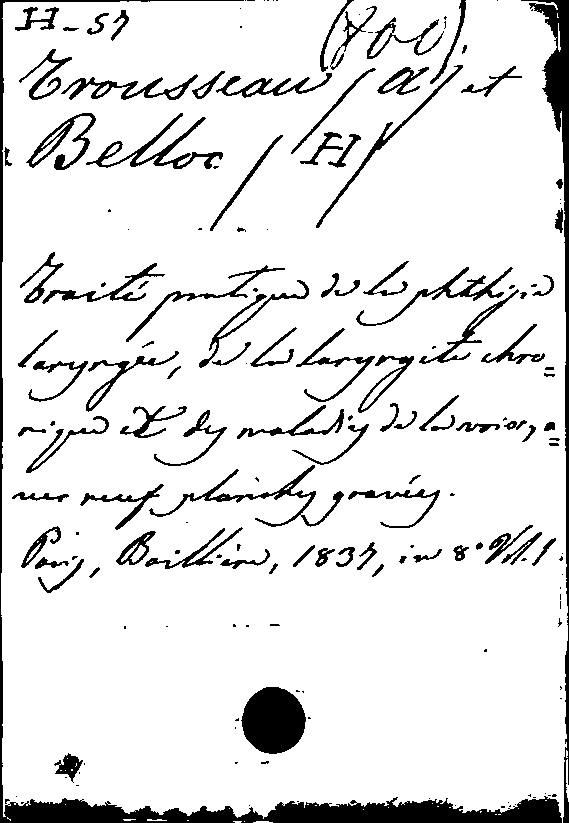 H-57 (800)
Trousseau (A) et
Belloc (H)
Traité pratique de la phthisie
laryngée, de la laryngite chro=
nique et des maladies de la voix, a=
vec neuf planches gravées.
Paris, Baillière, 1837, in 8° Vol. 1.